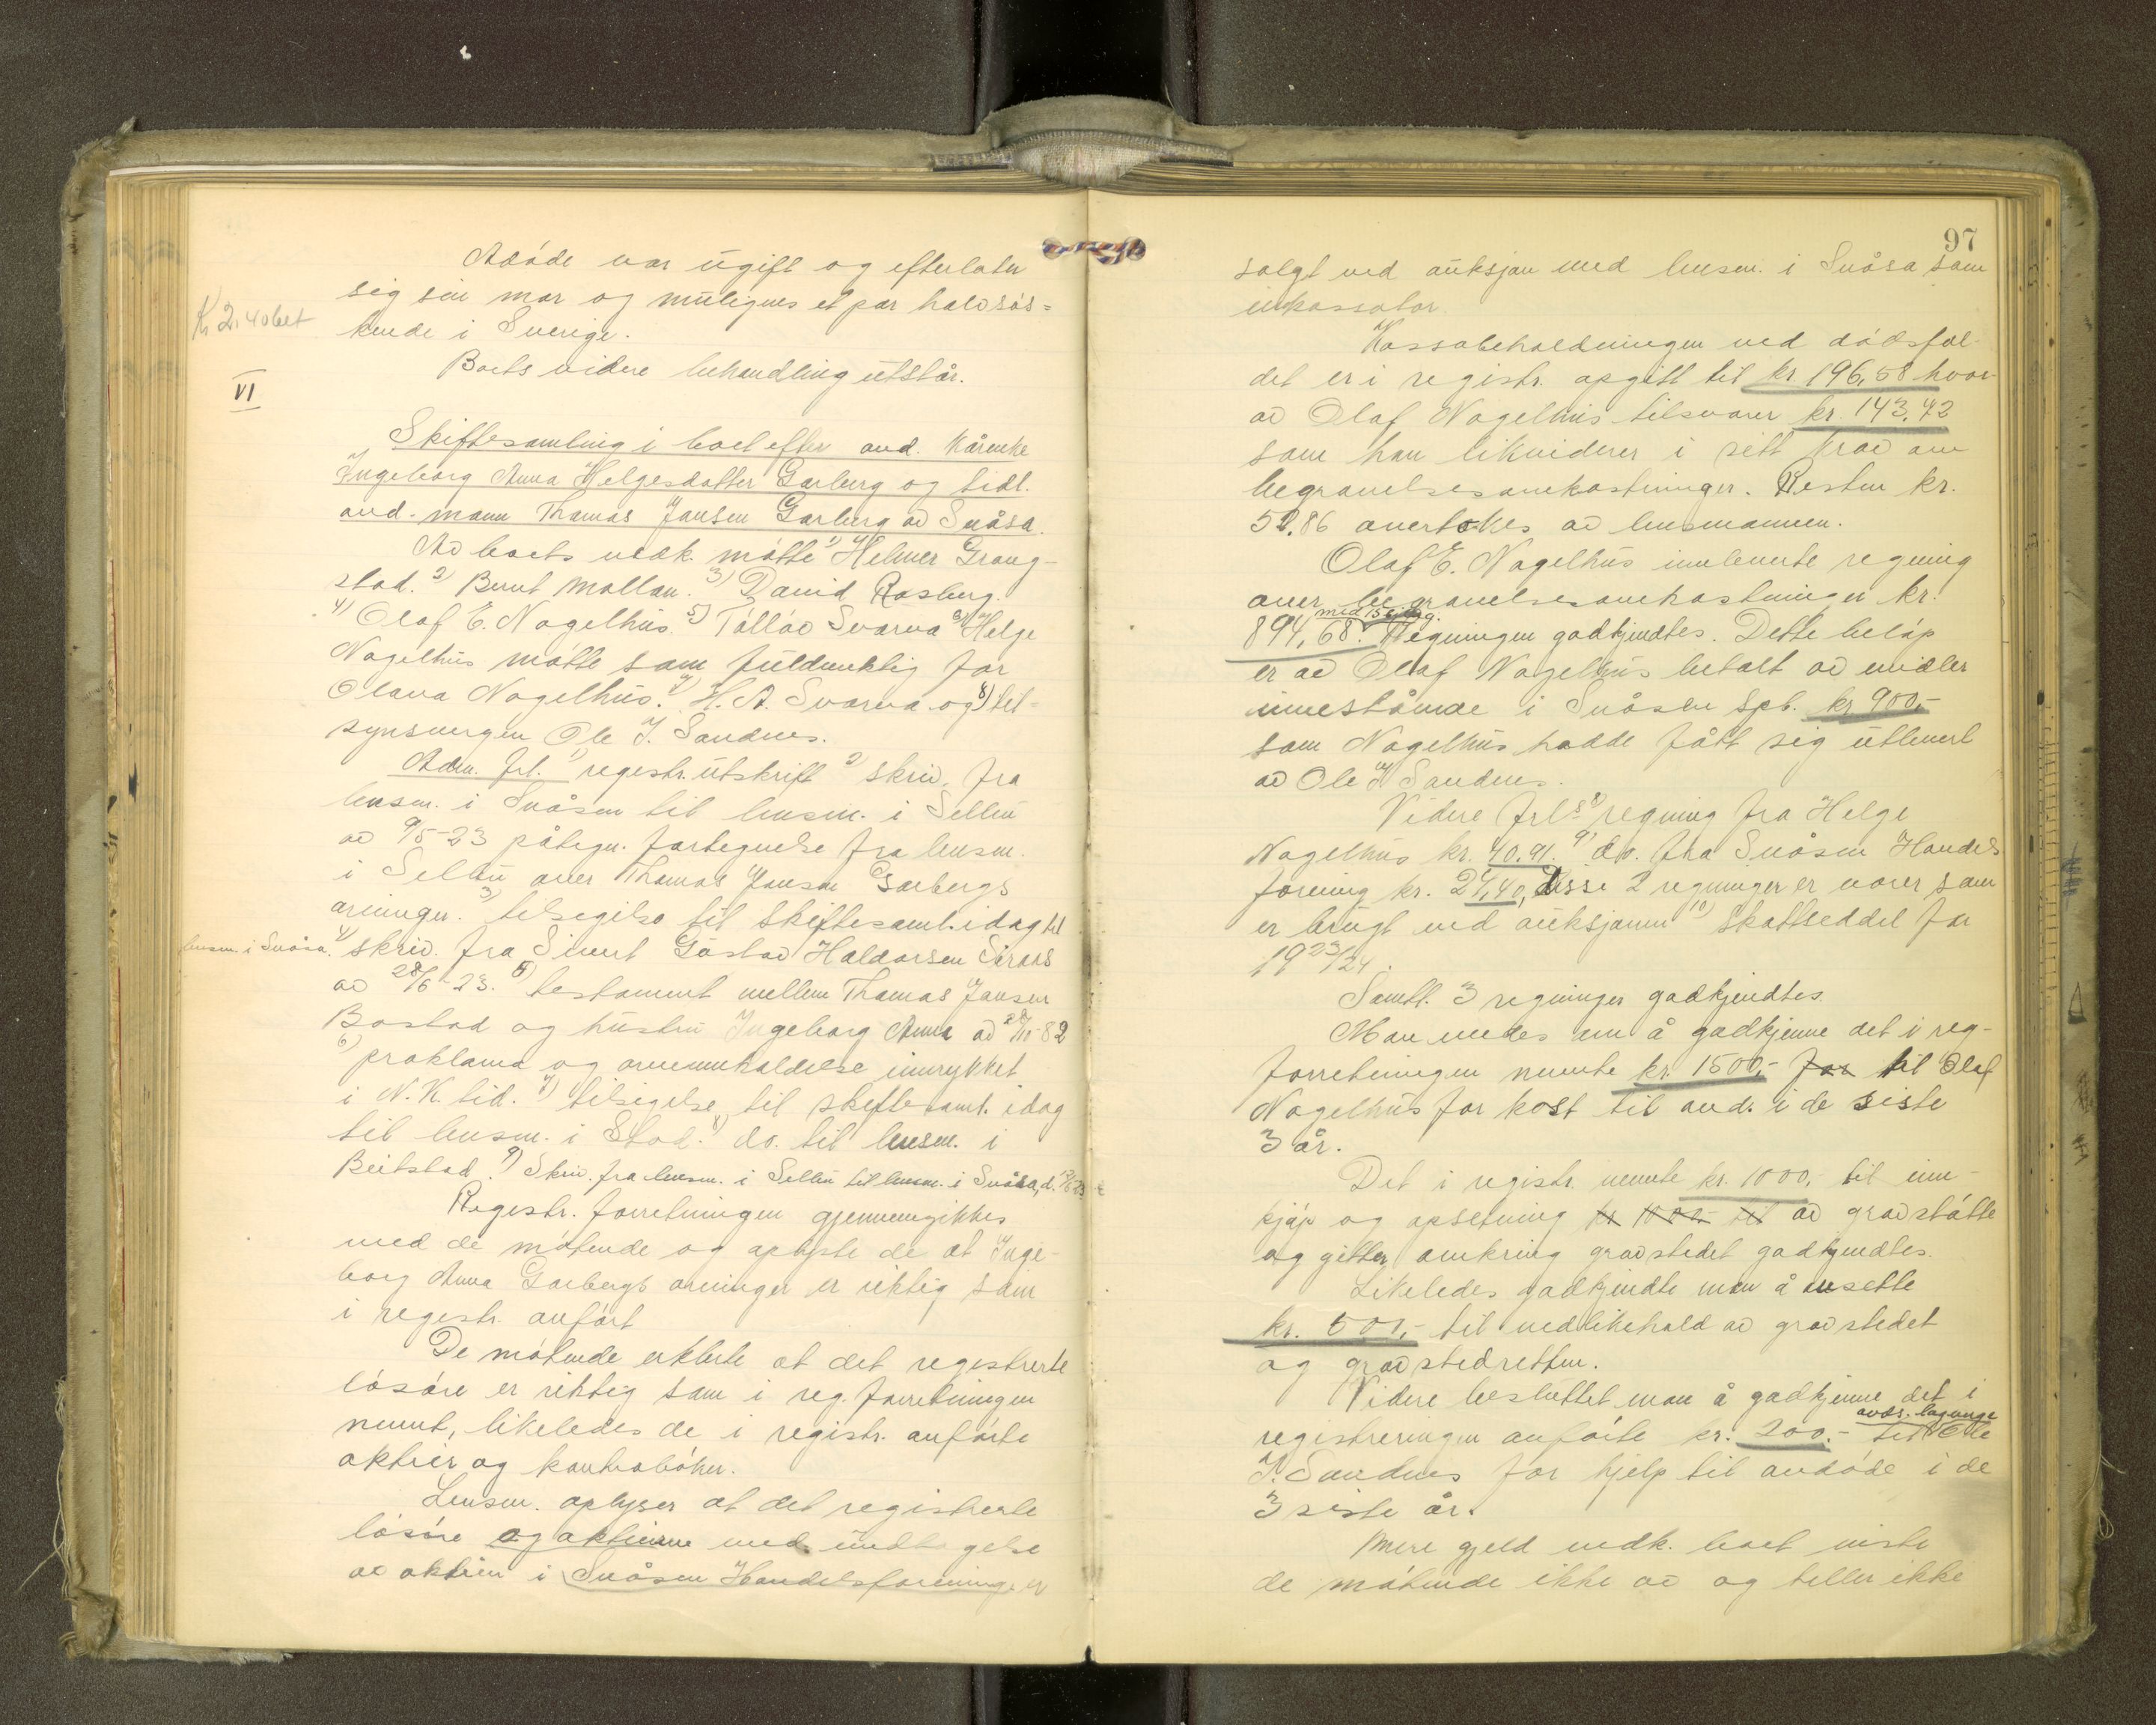 Avdöde var ugift og efterlater
sig sin mor og muligens et par halvsös=
Kr 2.40 bet
kende i Sverige.
Boets videre behandling utstår.
VI
Skiftesamling i boet efter avd. kårenke
Ingeborg Anna Helgesdatter Garberg og tidl.
avd. mann Thomas Jansen Garberg av Snåsa.
Av boets vedk. mötte 1) Helmer Grong-
stad. 2) Bernt Mollan. 3) David Rosberg.
4) Olaf E. Nagelhus. 5) Tölløv Svarva 6) Helge
Nagelhus mötte som fuldmektig for
Olava Nagelhus. 7) H. A. Svarva og 8) til-
synsvergen Ole J. Sandnes.
Adm. frl. 1) registr. utskrift 2) skriv. fra
lensm. i Snåsen til lensm. i Selbu
av 9/5-23 påtegn. fortegnelse fra lensm.
i Selbu over Thomas Jansen Garbergs
arvinger. 3) tilsigelse til skiftesaml. idag til
lensm. i Snåsa. 4) skriv. fra Sivert Gustav Haldorsen
av 28/6-23. 5) testament mellem Thomas Jansen
Bostad og hustru Ingeborg Anna av 28/10-82
6) proklama og arveinnkaldelse innrykket
i N.K. tid. 7) tilsigelse til skiftesaml. idag
til lensm. i Stod. 8) do. til lensm. i
Beitstad. 9) Skriv. fra lensm. i Selbu til lensm. i Snåsa, d.
Registr. forretningen gjennemgikkes
med de mötende og oplyste de at Inge-
borg Anna Garbergs arvinger er riktig som
i registr. anfört
De mötende erklærte at det registrerte
lösöre er riktig som i reg. forretningen
nevnt, likeledes de i registr. anförte
aktier og kontrabøker.
Lensm. oplyser at det registrerte
lösöre og aktierne med undtagelse
av aktien i Snåsen Handelsforening er
97
solgt ved auksjon med lensm. i Snåsa som
inkassator.
Kassabeholdningen ved dödsfal-
det er i registr. opgitt til kr 196,58 hvor-
av Olaf Nagelhus tilsvarer kr. 143,72
som han likviderer i sitt krav om
begravelsesomkostninger. Resten kr.
52.86 overtokes av lensmannen.
Olaf E. Nagelhus innleverte regning
over begravelsesomkostninger kr.
med 15 bilag.
894,68. Regningen godkjendtes. Dette belöp
er av Olaf Nagelhus betalt av midler
innestående i Snåsen Spb. kr. 900,-
som Nagelhus hadde fått sig utlevert
av Ole J Sandnes.
Videre frls 8) regning fra Helge
Nagelhus kr. 40.91. 9) do. fra Snåsen Handels
forening kr. 24,40, disse 2 regninger er varer som
er brugt ved auksjonen 10) skattseddel for
1923/24.
Samtl. 3 regninger godkjendtes.
Man enedes om å godkjenne det i reg-
forretningen nevnte kr. 1500,- for til Olaf
Nagelhus for kost til avd. i de siste
3 år.
Det i registr. nevnte kr. 1000,- til inn-
kjöp og opsetning kr 1000.- til av gravstötte
og gitter omkring gravstedet godkjendtes.
Likeledes godkjendte man å avsette
kr. 500,- til vedlikehold av gravstedet
og gravstedretten.
Videre besluttet man å godkjenne det i
registreringen anförte kr. 200.- til Ole
J. Sandnes for hjelp til avdöde i de
3 siste år.
Mere gjeld vedk. boet viste
de mötende ikke av og heller ikke